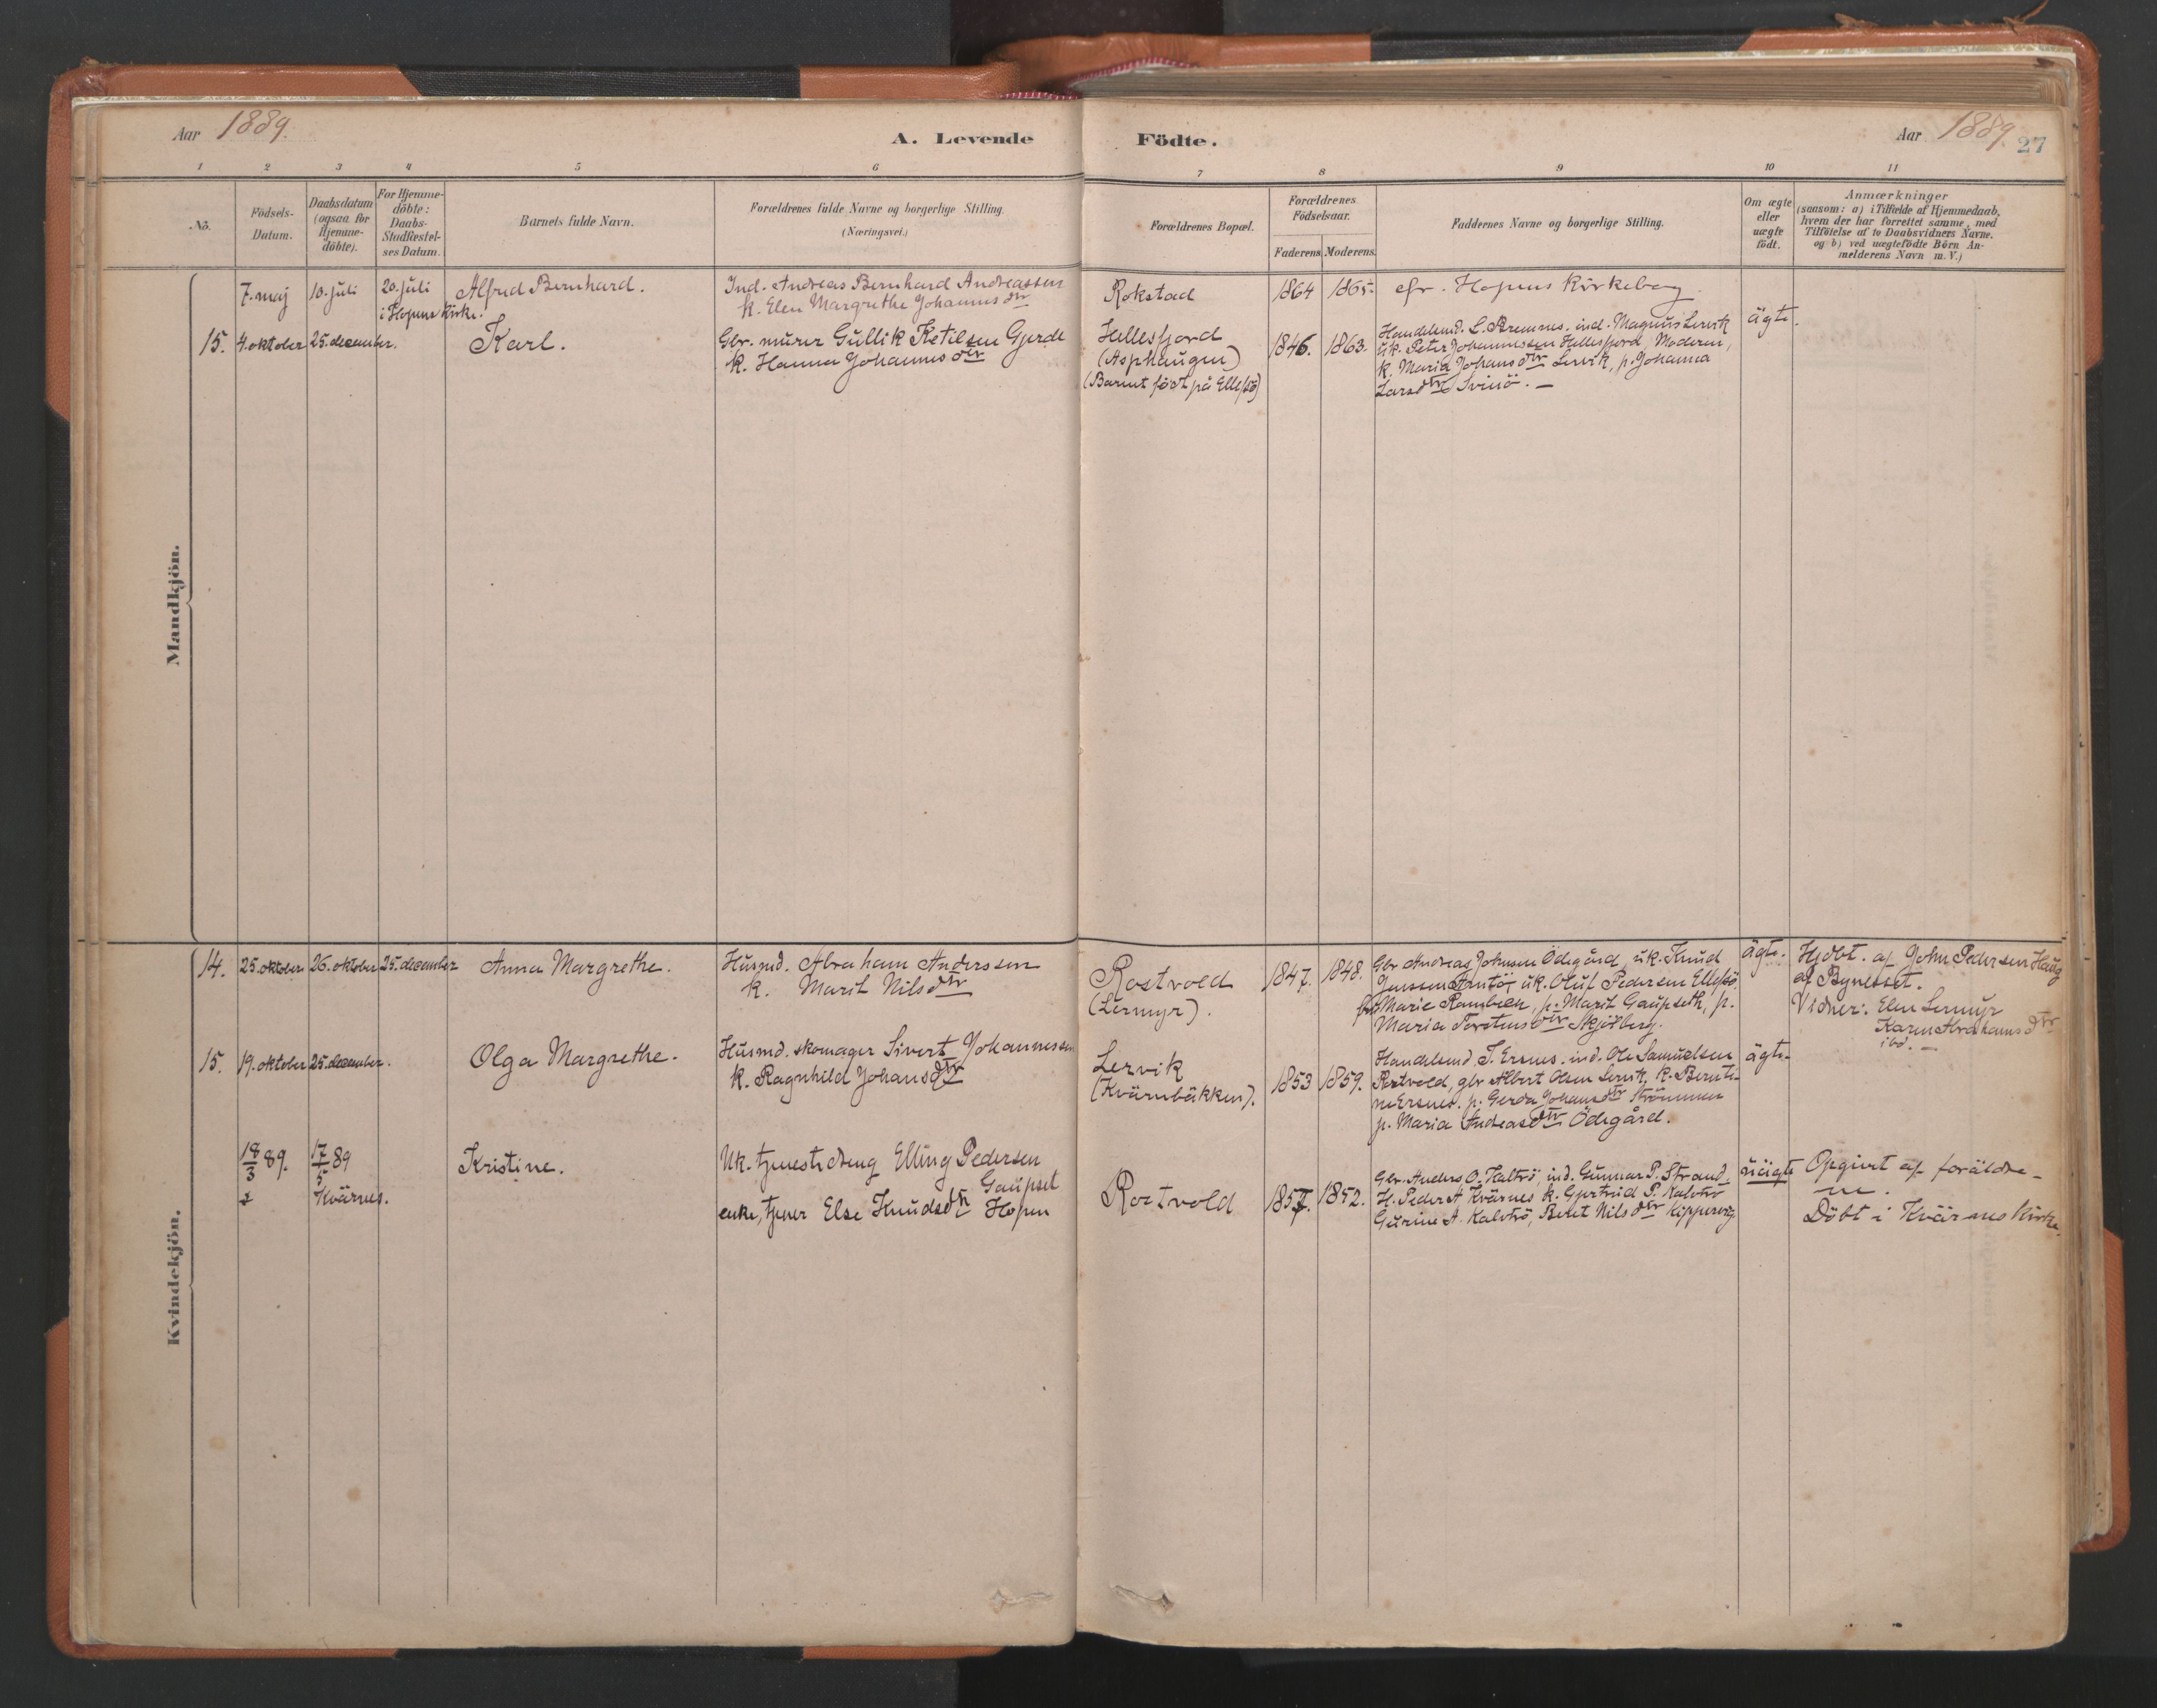 Aar 1889.
A. Levende Födte.
Aar 1889. 27
1 2 3 4 5 6 7 8 9 10 11
No.
Födsels-
Datum.
Daabsdatum
(ogsaa for
Hjemme-
döbte).
For Hjemme-
döbte:
Daabs-
Stadfæstel-
ses Datum.
Barnets fulde Navn.
Forældrenes fulde Navne og borgerlige Stilling.
(Næringsvei.)
Forældrenes Bopæl.
Forældrenes
Födselsaar.
Faderens. Moderens.
Faddernes Navne og borgerlige Stilling.
Om ægte
eller
uægte
födt.
Anmærkninger
(saasom: a) i Tilfælde af Hjemmedaab,
hvem der har forrettet samme, med
Tilföielse af to Daabsvidners Navne.
og b) ved uægtefödte Börn An-
melderens Navn m. V.)
Mandkjön.
7. maj 10. juli 20. juli
i Hopens Kirke.
Alfred Bernhard.
Ind. Andreas Bernhard Andreassen
k. Elen Margrethe Johannesdtr
Rokstad
1864 1865.
cfr. Hopens Kirkebog.
15. 4. oktober 25. december.
Karl.
Gbr. murer Gullik Ketilsen Gjerde
k. Hanna Johannesdtr
Hallesfjord
(Asphaugen)
(Barnet födt på Ellefsö)
1846. 1863.
Handelsmd. L. Bremnes. ind. Magnus Lervik
uk. Peter Johannessen Hallesfjord, Moderen,
k. Maria Johansdtr Lervik, p. Johanna
Larsdtr Svinö. —
ägte.
Kvindekjön.
14. 25. oktober 26. oktober 25. december
Anna Margrethe.
Husmd. Abraham Anderssen
k. Marit Nilsdtr
Rostvold
(Lermyr).
1847. 1848.
Gbr Andreas Johnsen Ödegård, uk. Knud
Jenssen uk. Oluf Pedersen Ellefsö,
Marie Rambech, p. Marit Gaupseth, p.
Maria Torstensdtr Skjölberg.
ägte.
Hjdbt. af John Pedersen Haug
af Bynesset.
Vidner: Elen Lermyr
Karen Abrahamsdtr
ibd. —
15. 19. oktober 25. december.
Olga Margrethe.
Husmd. skomager Sivert Johannessen
k. Ragnhild Johansdtr
Lervik
(Kvärnbäkken).
1853 1859.
Handelsmd. T. Ersnes. ind. Ole Samuelsen
Rostvold, gbr Albert Olsen Lervik, k. Bernti-
ne Ersnes. p. Gerda Johansdtr Strömmen
p. Maria Andreasdtr Ödegård.
ägte.
18/3 89. 17/5 89
Kvärnes.
Kristine.
Uk. tjenestedreng Elling Pedersen
Gaupset
enke, tjener Else Knudsdtr Hopen
Rostvold
1857. 1852.
Gbr. Anders O. Kaltrö, ind. Gunnar P. Strand,
H. Peder A. Kvärnes k. Gjertrud P. Kalvtrö
Gurine A. Kalvtrö, Beret Nilsdtr Kippervig
uägte
Opgivet af foräldre-
ne.
Döbt i Kvärnes Kirke.